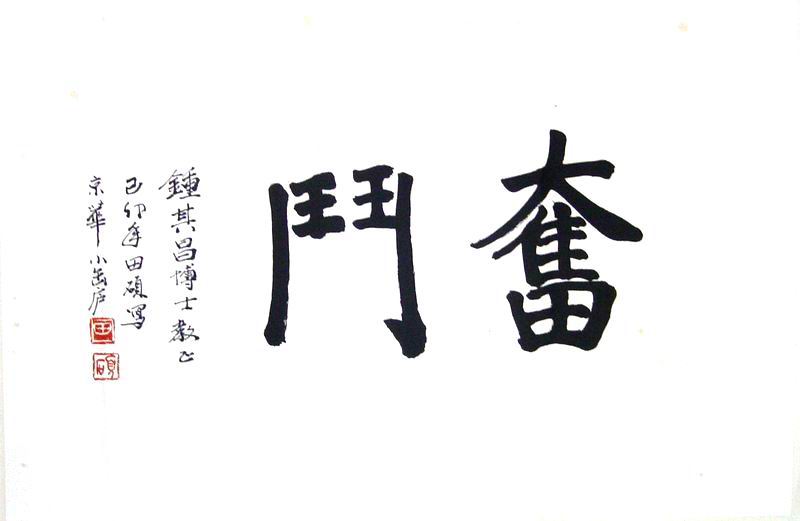 奮鬥
鍾其昌博士教正
己卯年田碩寫
京華小缶庐
田
碩